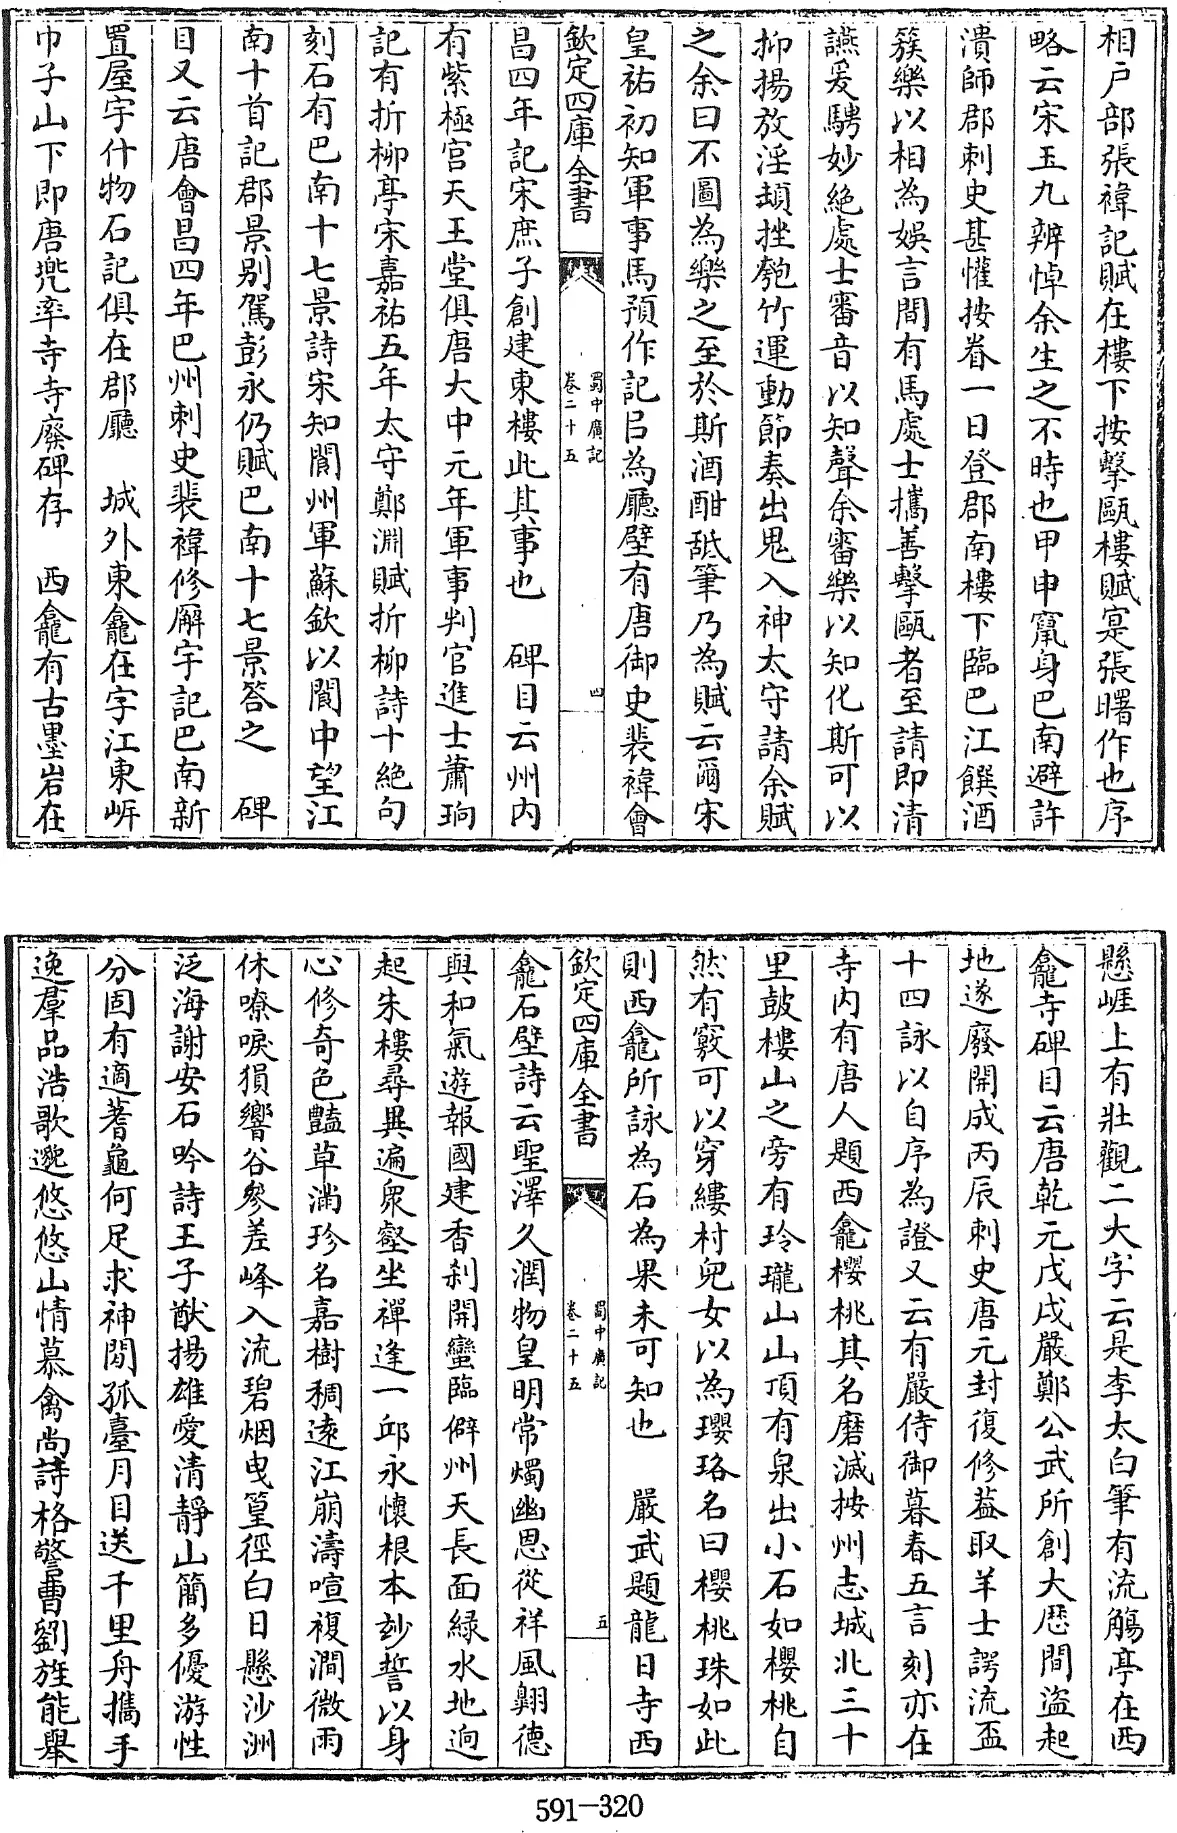 相戸部張禕記賦在樓下按擊甌樓賦寔張曙作也序
略云宋玉九辨悼余生之不時也甲申竄身巴南避許
潰師郡刺史甚懽按眷一日登郡南樓下臨巴江饌酒
簇樂以相為娛言間有馬處士攜善擊甌者至請即清
讌爰騁妙絶處士審音以知聲余審樂以知化斯可以
抑揚放淫頡挫匏竹運動節奏出鬼入神太守請余賦
之余曰不圖為樂之至於斯酒酣舐筆乃為賦云爾宋
皇祐初知軍事馬預作記㠯為廳壁有唐御史裴禕會
欽定四庫全書
蜀中廣記
卷二十五
四
昌四年記宋庶子創建東樓此其事也 碑目云州内
有紫極宫天王堂俱唐大中元年軍事判官進士蕭珦
記有折柳亭宋嘉祐五年太守鄭淵賦折柳詩十絶句
刻石有巴南十七景詩宋知閬州軍蘇欽以閬中望江
南十首記郡景别駕彭永仍賦巴南十七景答之 碑
目又云唐會昌四年巴州刺史裴禕修廨宇記巴南新
置屋宇什物石記俱在郡廳 城外東龕在字江東㟁
巾子山下即唐兠率寺寺廢碑存 西龕有古墨岩在
懸崖上有壯觀二大字云是李太白筆有流觴亭在西
龕寺碑目云唐乾元戊戌嚴鄭公武所創大歴間盗起
地遂廢開成丙辰刺史唐元封復修葢取羊士諤流盃
十四詠以自序為證又云有嚴侍御暮春五言刻亦在
寺内有唐人題西龕櫻桃其名磨滅按州志城北三十
里鼓樓山之旁有玲瓏山山頂有泉出小石如櫻桃自
然有竅可以穿縷村兒女以為瓔珞名曰櫻桃珠如此
則西龕所詠為石為果未可知也 嚴武題龍日寺西
欽定四庫全書
蜀中廣記
卷二十五
五
龕石壁詩云聖澤久潤物皇明常燭幽思從祥風翺德
與和氣遊報國建香刹開蠻臨僻州天長面緑水地迥
起朱樓尋異遍衆壑坐禪逢一邱永懷根本玅誓以身
心修奇色豔草滿珍名嘉樹稠逺江崩濤喧複澗微雨
休嘹唳猿響谷參差峰入流碧烟曳篁徑白日懸沙洲
泛海謝安石吟詩王子猷揚雄愛清静山簡多優游性
分固有適蓍龜何足求神閒孤臺月目送千里舟攜手
逸羣品浩歌邈悠悠山情慕禽尚詩格警曹劉旌能舉
591-320